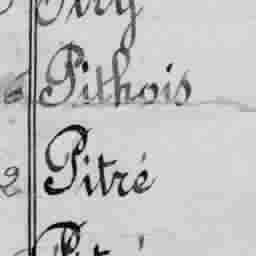 6 Pithois
2 Pitré